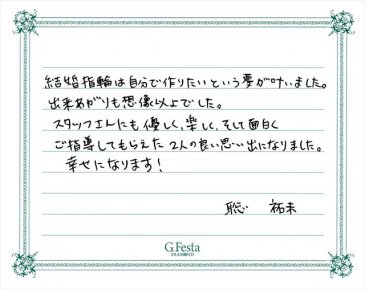 結婚指輪は自分で作りたいという夢が叶いました。
出来あがりも想像以上でした。
スタッフさんにも優しく、楽しく、そして面白く
ご指導してもらえた2人の良い思い出になりました。
幸せになります!
聡 祐未
G.Festa
DIAMOND